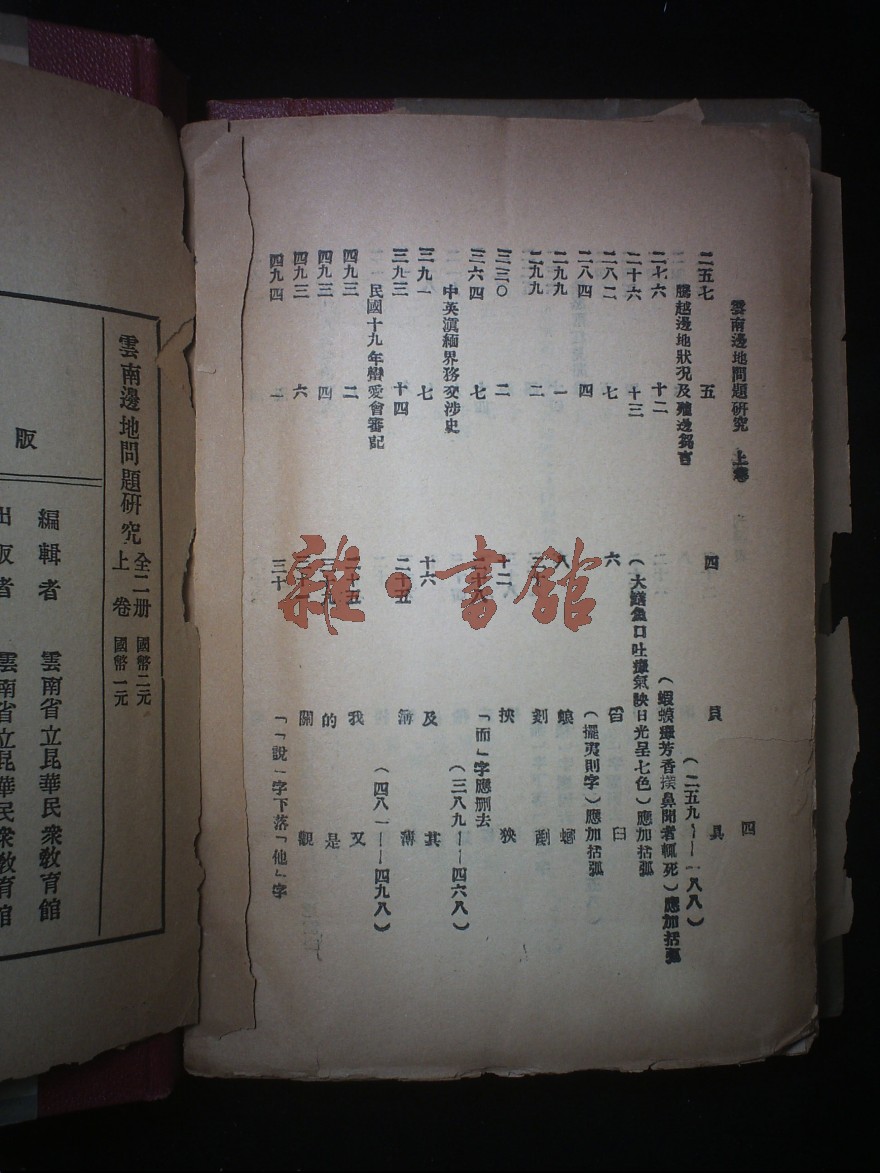 雲南邊地問題研究 上卷 四
二五七 五 四 員 具
騰越邊地狀況及殖邊芻言 (二五九——一八八)
二七六 十二 (蝦蟆瘴芳香撲鼻聞者輒死)應加括弧
二十六 十三 (大鱔魚口吐瘴氣映日光呈七色)應加括弧
二八二 七 六 臼
二八四 四 (擺夷則字)應加括弧
二九九 一 八
二九九 二 刻 劃
三三〇 二 十二 挾 狹
三六四 七 二十八 「而」字應删去
中英滇緬界務交涉史 (三八九——四六八)
三九一 七 十六 及 其
三九三 十四 二十五 簿 薄
民國十九年巒愛會審記 (四八一——四九八)
四九三 二 二十五 我 又
四九三 四 的 是
四九三 六 關 觀
四九四 二 三十 「「說」字下落「他」字
雜·書館
雲南邊地問題研究 上卷 全二册 國幣二元 國幣一元
編輯者 雲南省立昆華民衆教育館
出版者 雲南省立昆華民衆教育館
版